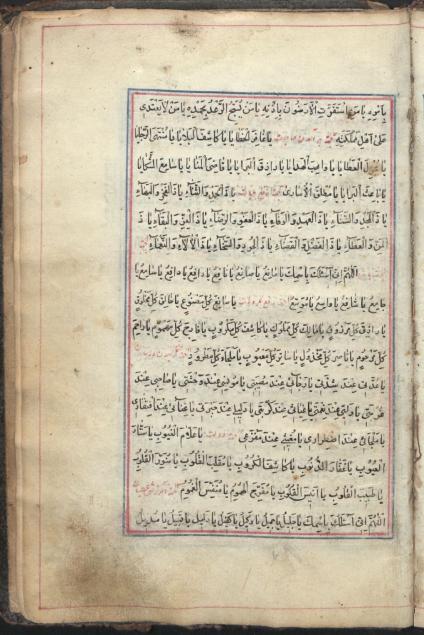 بِأَمْرِهِ يَا مَنِ اسْتَقَرَّتِ الْأَرَضُونَ بِإِذْنِهِ يَا مَنْ يُسَبِّحُ الرَّعْدُ بِحَمْدِهِ يَا مَنْ لَا يَعْتَدِى
عَلَى أَهْلِ مَمْلَكَتِهِ يَا غَافِرَ الْخَطَايَا يَا كَاشِفَ الْبَلَايَا يَا مُنْتَهَى الرَّجَايَا
يَا مُجْزِلَ الْعَطَايَا يَا وَاهِبَ الْهَدَايَا يَا رَازِقَ الْبَرَايَا يَا قَاضِيَ الْمَنَايَا يَا سَامِعَ الشَّكَايَا
يَا بَاعِثَ الْبَرَايَا يَا مُطْلِقَ الْأُسَارَى يَا ذَا الْحَمْدِ وَالثَّنَاءِ يَا ذَا الْفَخْرِ وَالْبَهَاءِ
يَا ذَا الْمَجْدِ وَالسَّنَاءِ يَا ذَا الْعَهْدِ وَالْوَفَاءِ يَا ذَا الْعَفْوِ وَالرِّضَاءِ يَا ذَا الْمَنِّ وَالْعَطَاءِ يَا ذَا الْفَصْلِ وَالْقَضَاءِ يَا ذَا الْجُودِ وَالسَّخَاءِ يَا ذَا الْآلَاءِ وَالنَّعْمَاءِ
اللَّهُمَّ إِنِّي أَسْئَلُكَ بِاسْمِكَ يَا مَانِعُ يَا دَافِعُ يَا رَافِعُ يَا صَانِعُ يَا نَافِعُ يَا سَامِعُ يَا
جَامِعُ يَا شَافِعُ يَا وَاسِعُ يَا مُوسِعُ يَا صَانِعَ كُلِّ مَصْنُوعٍ يَا خَالِقَ كُلِّ مَخْلُوقٍ
يَا رَازِقَ كُلِّ مَرْزُوقٍ يَا مَالِكَ كُلِّ مَمْلُوكٍ يَا كَاشِفَ كُلِّ مَكْرُوبٍ يَا فَارِجَ كُلِّ مَهْمُومٍ يَا رَاحِمَ
كُلِّ مَرْحُومٍ يَا نَاصِرَ كُلِّ مَخْذُولٍ يَا سَاتِرَ كُلِّ مَعْيُوبٍ يَا مَلْجَأَ كُلِّ مَطْرُودٍ
يَا عُدَّتِي عِنْدَ شِدَّتِي يَا رَجَائِي عِنْدَ مُصِيبَتِي يَا مُونِسِي عِنْدَ وَحْشَتِي يَا صَاحِبِي عِنْدَ
غُرْبَتِي يَا وَلِيِّي عِنْدَ نِعْمَتِي يَا غِيَاثِي عِنْدَ كُرْبَتِي يَا دَلِيلِي عِنْدَ حَيْرَتِي يَا غَنَائِي عِنْدَ افْتِقَارِي
يَا مَلْجَئِي عِنْدَ اضْطِرَارِي يَا مُعِينِي عِنْدَ مَفْزَعِي يَا عَلَّامَ الْغُيُوبِ يَا سَتَّارَ
الْعُيُوبِ يَا غَفَّارَ الذُّنُوبِ يَا كَاشِفَ الْكُرُوبِ يَا مُقَلِّبَ الْقُلُوبِ يَا مُنَوِّرَ الْقُلُوبِ
يَا طَبِيبَ الْقُلُوبِ يَا أَنِيسَ الْقُلُوبِ يَا مُفَرِّجَ الْهُمُومِ يَا مُنَفِّسَ الْغُمُومِ
اللَّهُمَّ إِنِّي أَسْئَلُكَ بِاسْمِكَ يَا جَلِيلُ يَا جَمِيلُ يَا وَكِيلُ يَا كَفِيلُ يَا دَلِيلُ يَا قَبِيلُ يَا مُدِيلُ